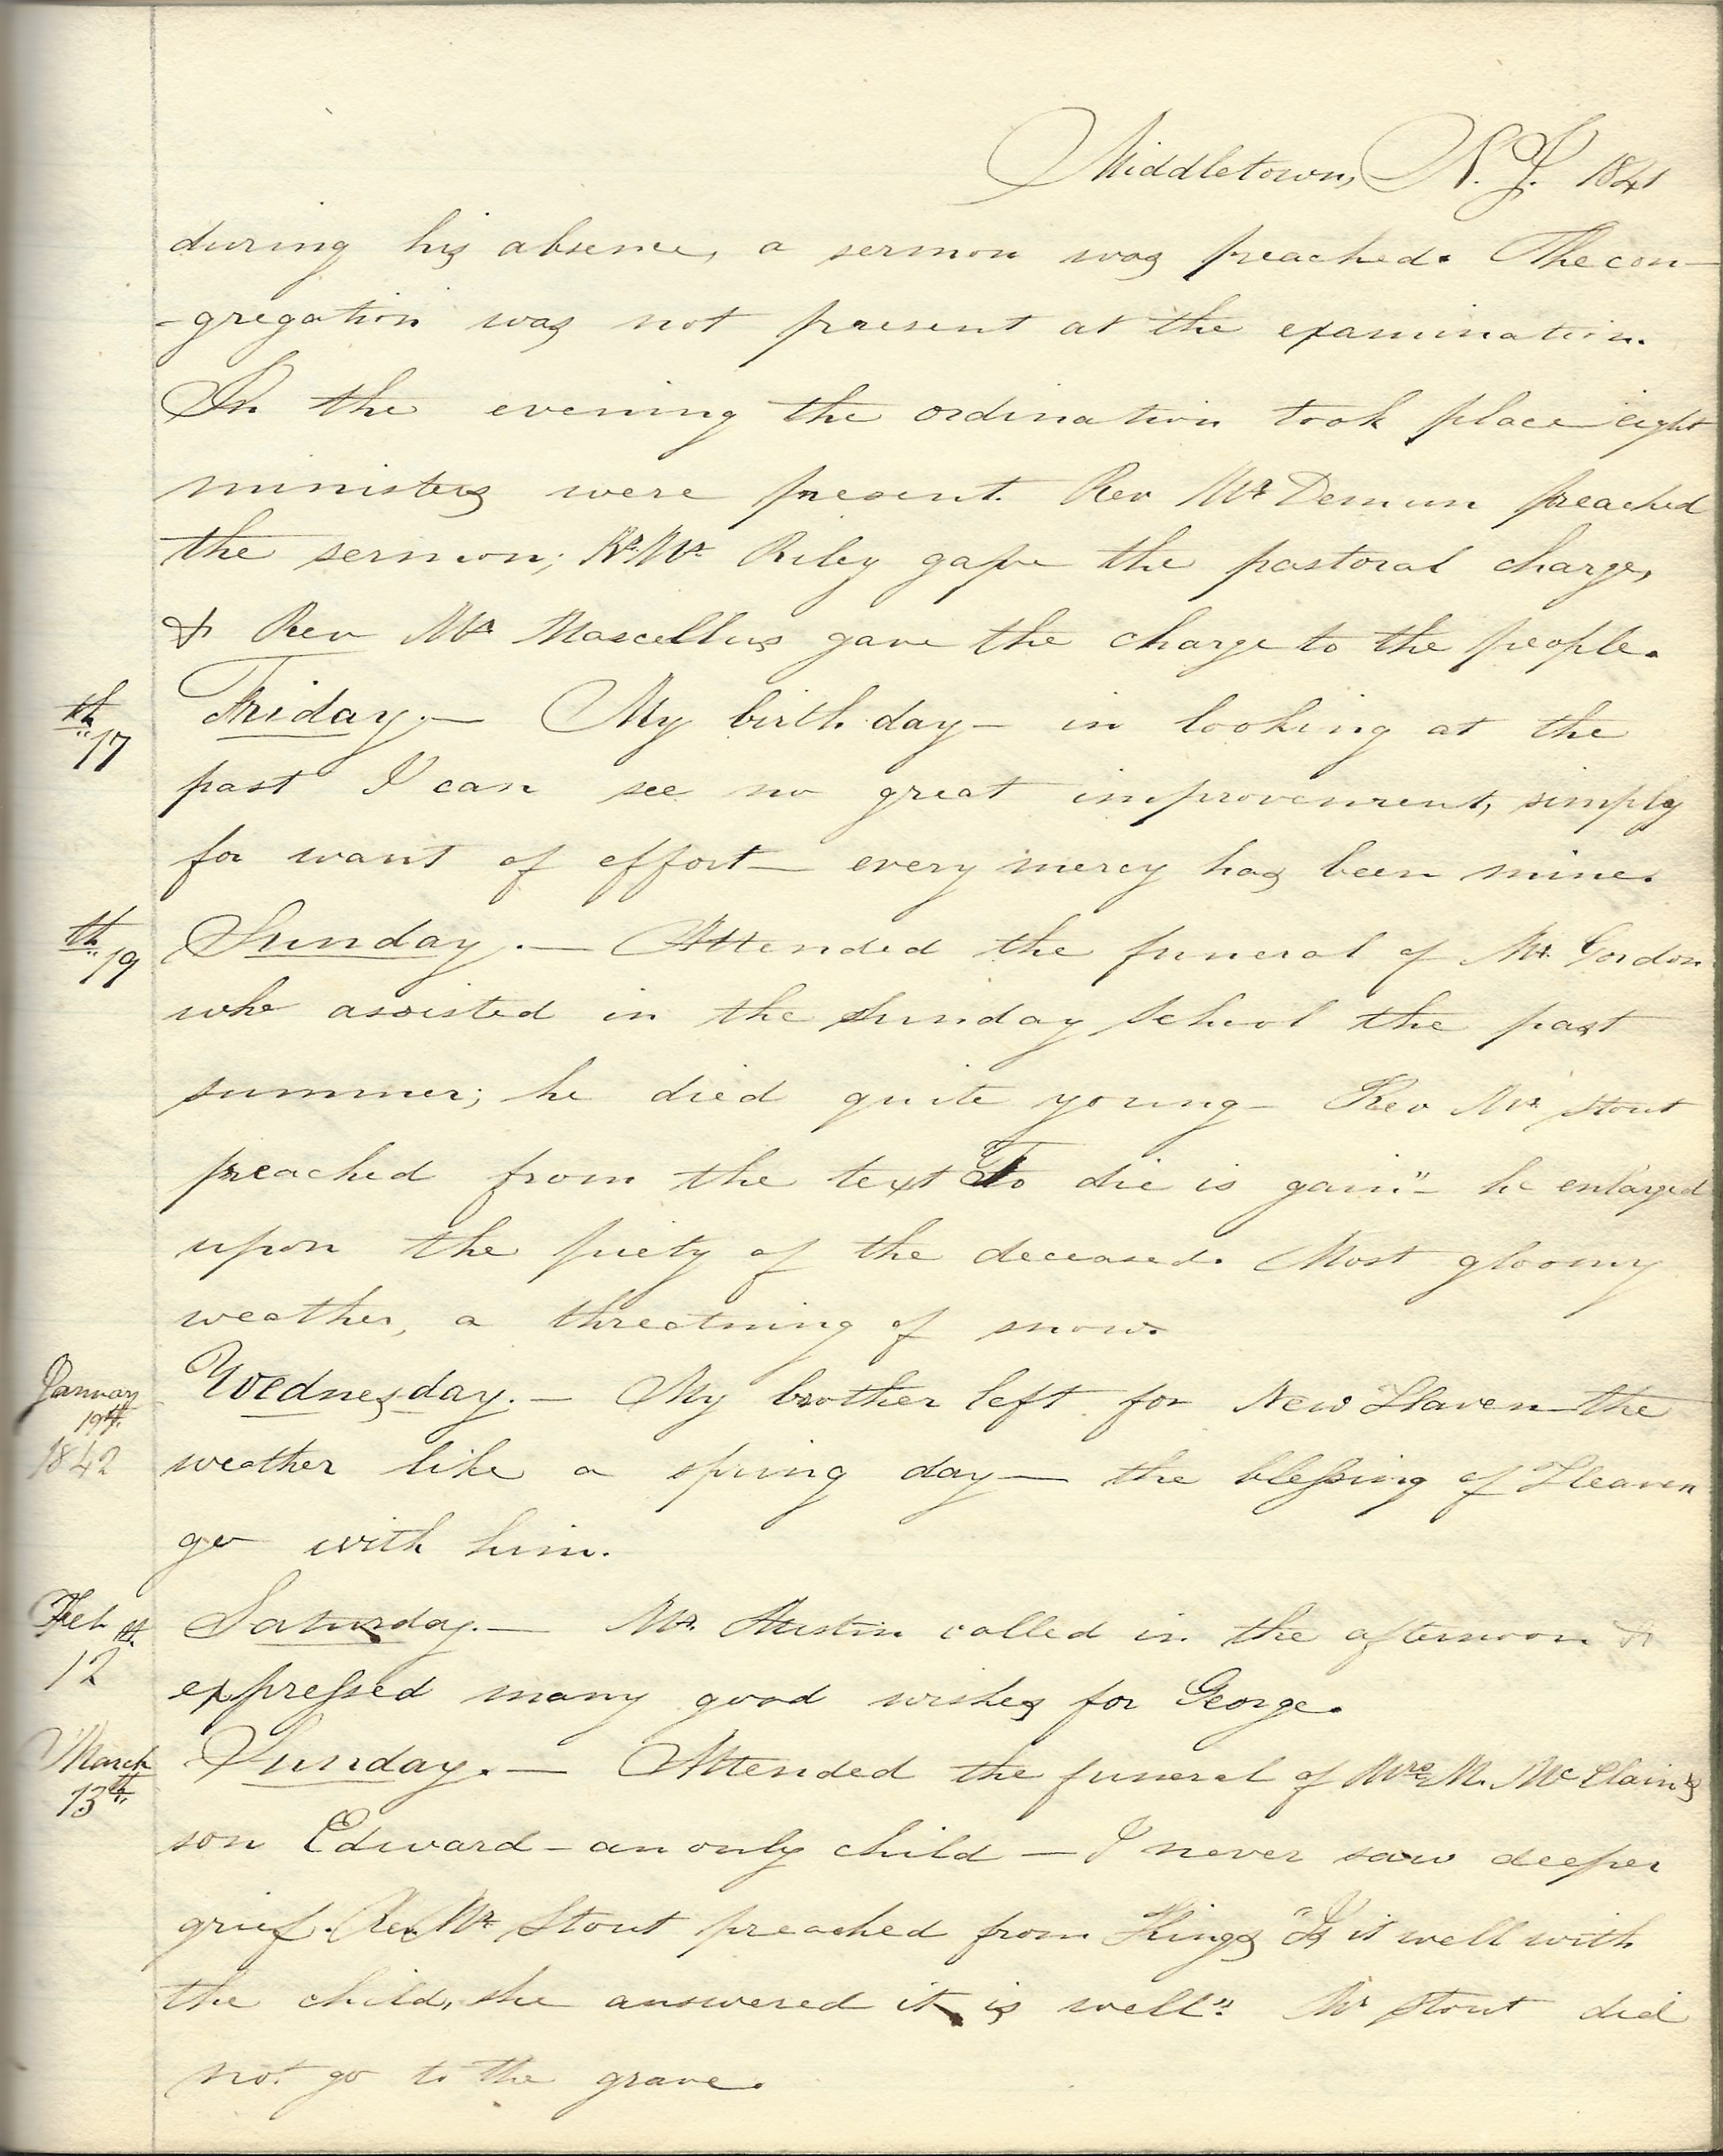 Middletown, N. J. 1841
during his absence, a sermon was preached. The con-
-gregation was not present at the examination.
In the evening the ordination took place eight
ministers were present. Rev Mr Demun preached
the sermon; Rv. Mr Riley gave the pastoral charge,
& Rev Mr Marcellus gave the charge to the people.
17th Friday.— My birth day— in looking at the
past I can see no great improvement, simply
for want of effort— every mercy has been mine.
19th Sunday.— Attended the funeral of Mr. Gordon
who assisted in the Sunday School the past
summer; he died quite young— Rev Mr Stout
preached from the text "To die is gain"— he enlarged
upon the piety of the deceased. Most gloomy
weather, a threatning of snow.
January 19th 1842 Wednesday.— My brother left for New Haven—the
weather like a spring day— the blessing of Heaven
go with him.
Feb 12th Saturday.— Mr. Austin called in the afternoon &
expressed many good wishes for George.
March 13th Sunday.— Attended the funeral of Mrs M. McClain's
son Edward—an only child—I never saw deeper
grief. Rev Mr Stout preached from Kings "Is it well with
the child, she answered it is well". Mr Stout did
not go to the grave.